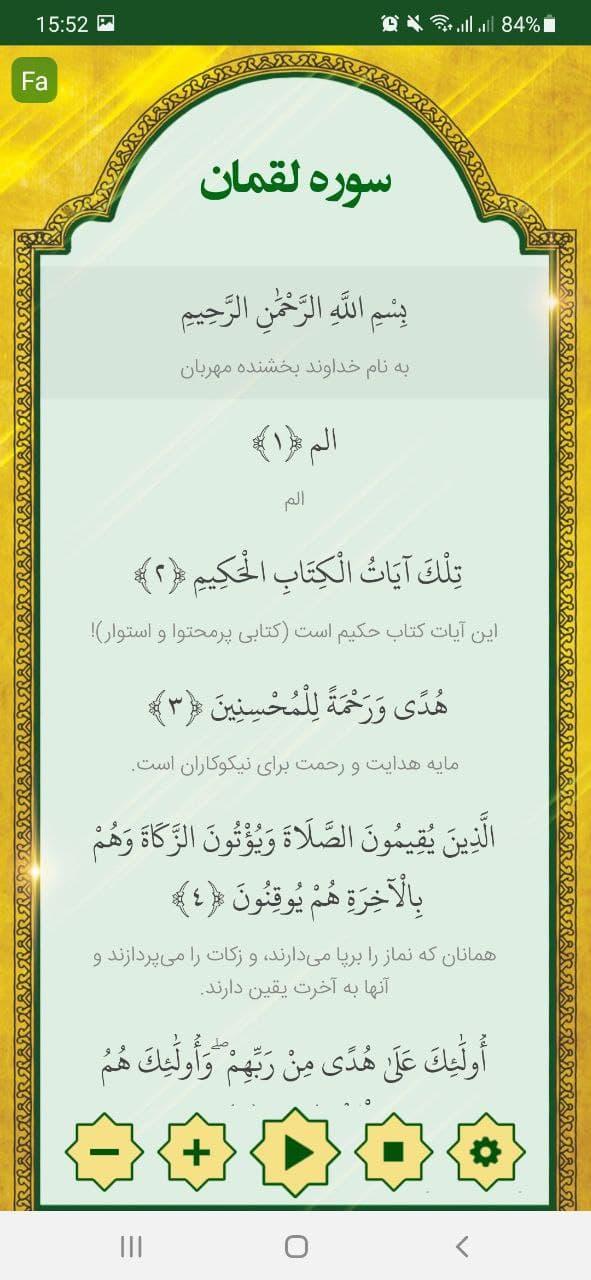 15:52
84%
Fa
سوره لقمان
بِسْمِ اللَّهِ الرَّحْمَٰنِ الرَّحِيمِ
به نام خداوند بخشنده مهربان
الم ﴿١﴾
الم
تِلْكَ آيَاتُ الْكِتَابِ الْحَكِيمِ ﴿٢﴾
این آیات کتاب حکیم است (کتابی پرمحتوا و استوار)!
هُدًى وَرَحْمَةً لِلْمُحْسِنِينَ ﴿٣﴾
مایه هدایت و رحمت برای نیکوکاران است.
الَّذِينَ يُقِيمُونَ الصَّلَاةَ وَيُؤْتُونَ الزَّكَاةَ وَهُمْ
بِالْآخِرَةِ هُمْ يُوقِنُونَ ﴿٤﴾
همانان که نماز را برپا می‌دارند، و زکات را می‌پردازند و
آنها به آخرت یقین دارند.
أُولَٰئِكَ عَلَىٰ هُدًى مِنْ رَبِّهِمْ ۖ وَأُولَٰئِكَ هُمُ